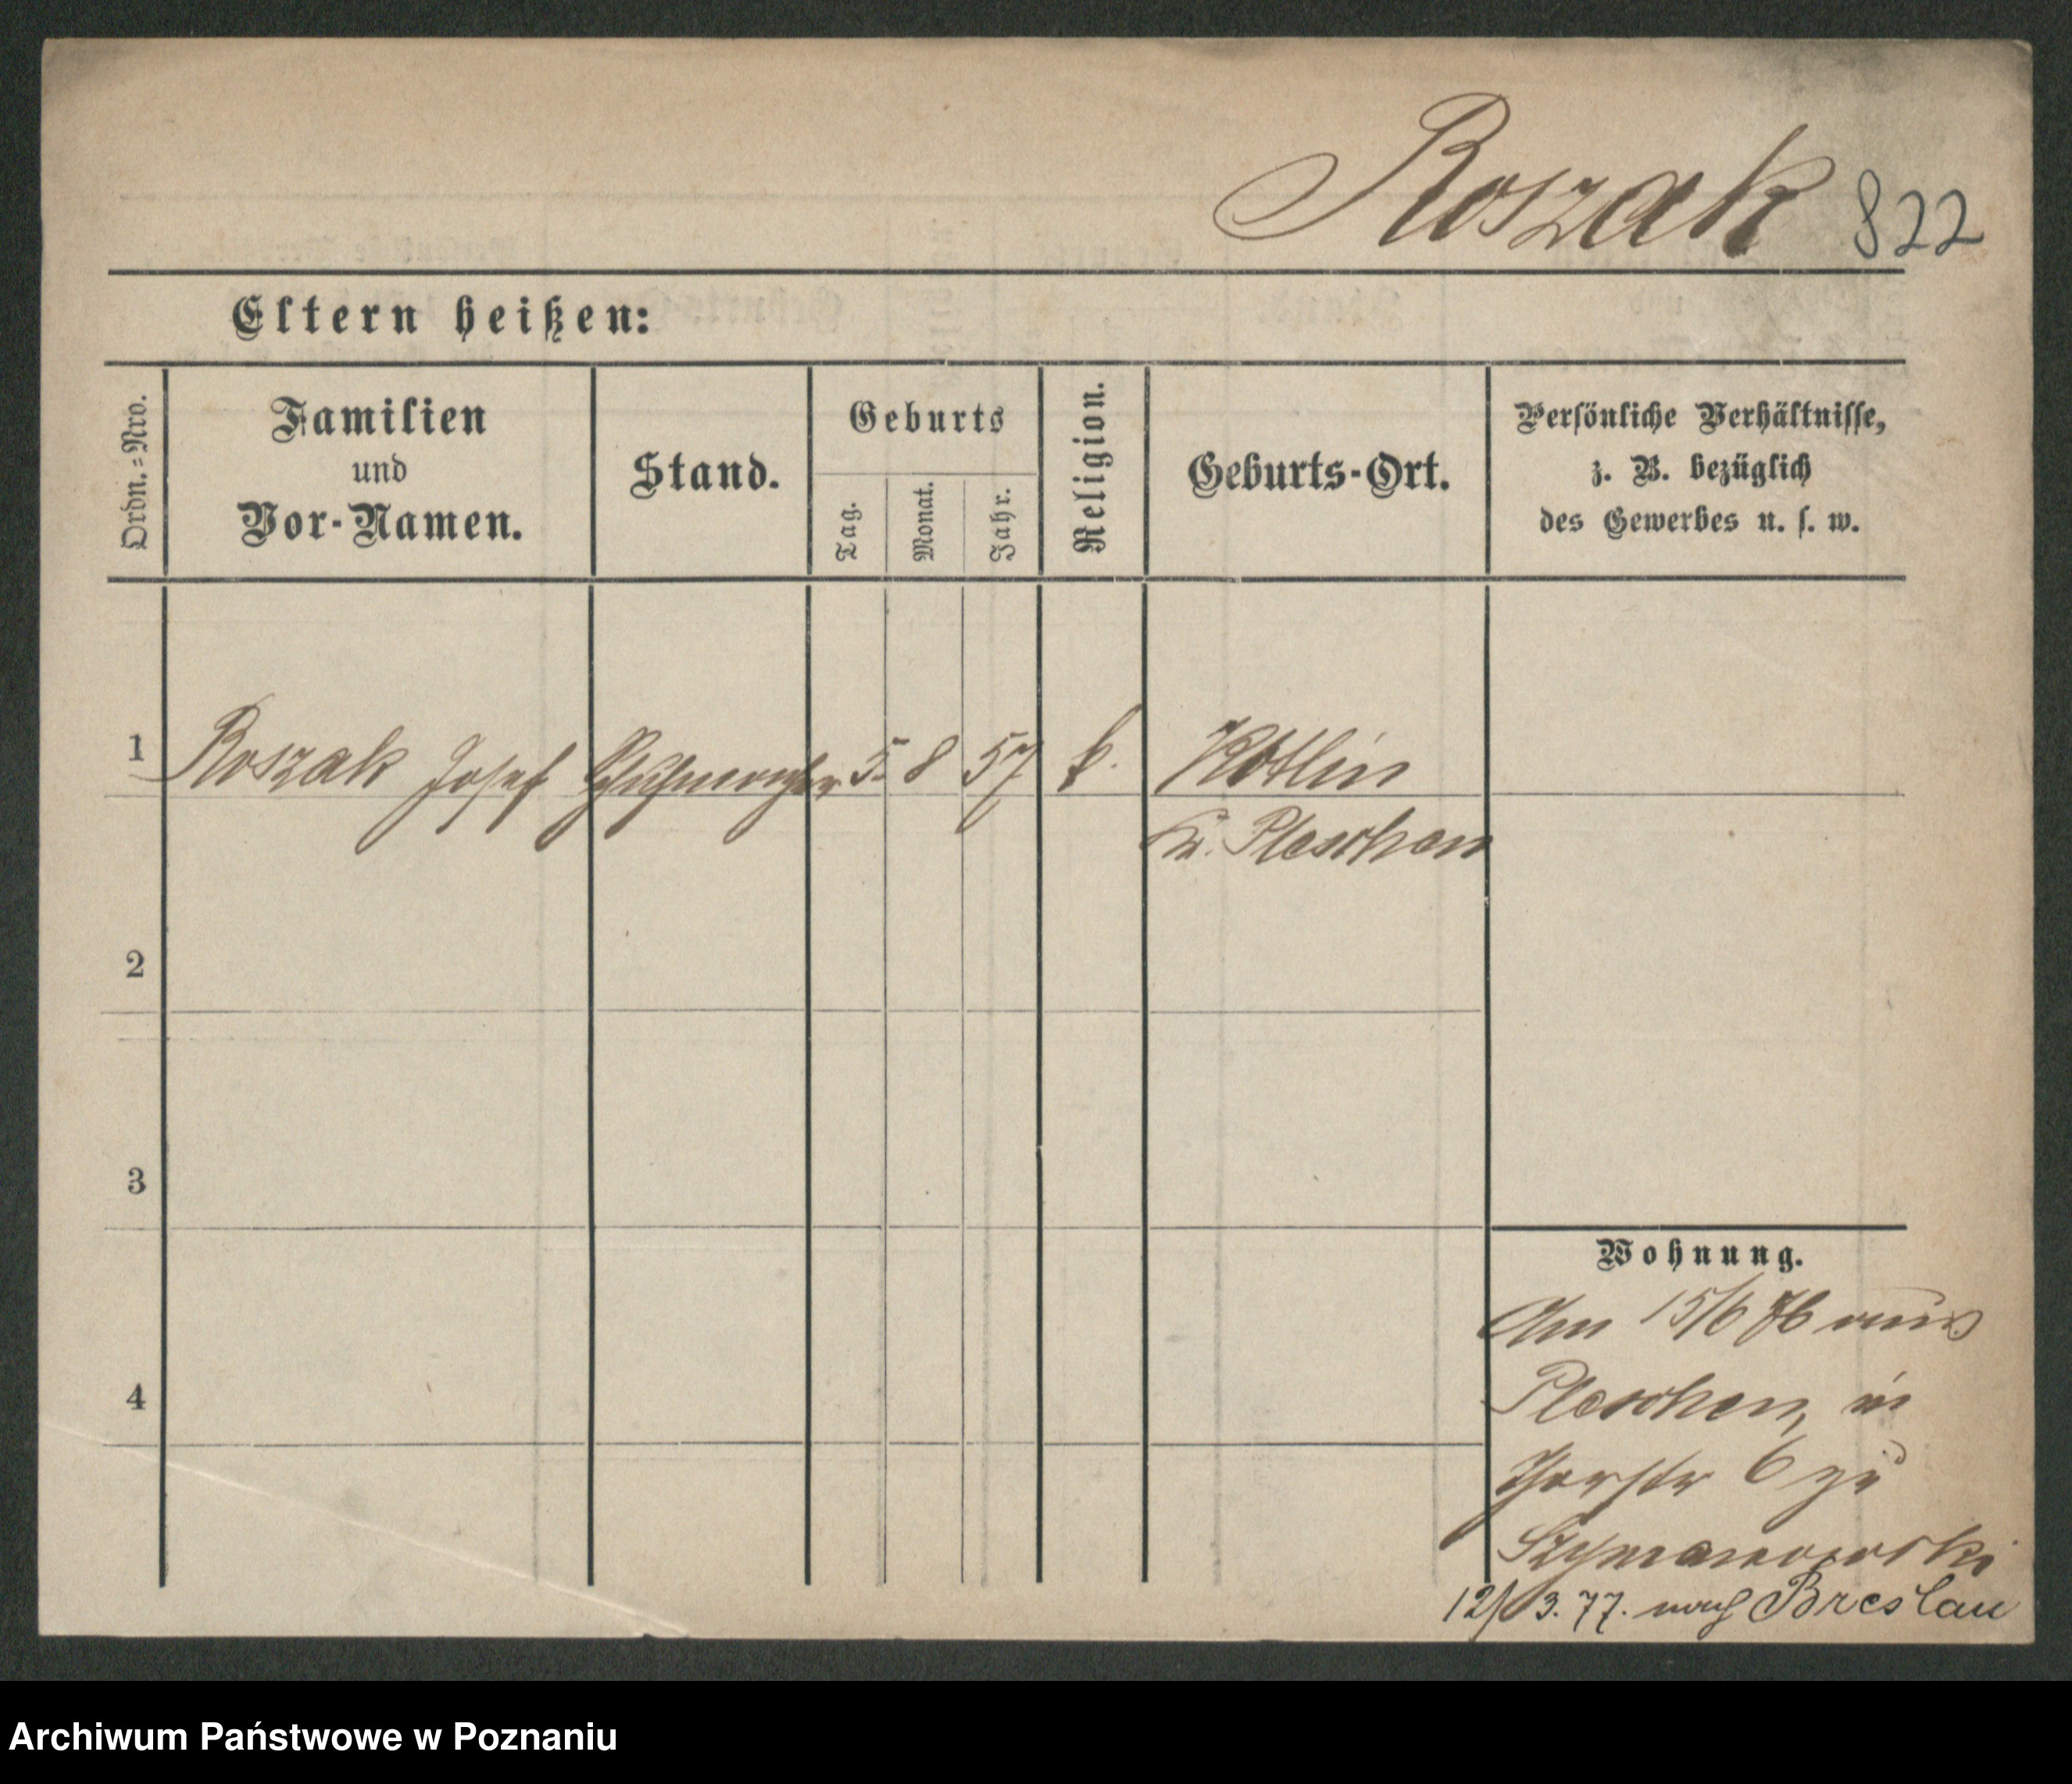 Roszak 822
Eltern heißen:
Ordn.=Nro.
Familien
und
Vor-Namen.
Stand.
Geburts
Tag.
Monat.
Jahr.
Religion.
Geburts-Ort.
Persönliche Verhältnisse,
z. B. bezüglich
des Gewerbes u. s. w.
1 Roszak Josef Schuhmacher 5. 8 57 k. Kotlin
Kr. Pleschen
2
3
4
Wohnung.
Am 15/6 76 aus
Pleschen, in
6 zu
Szymanowski
12/3. 77. nach Breslau
Archiwum Państwowe w Poznaniu